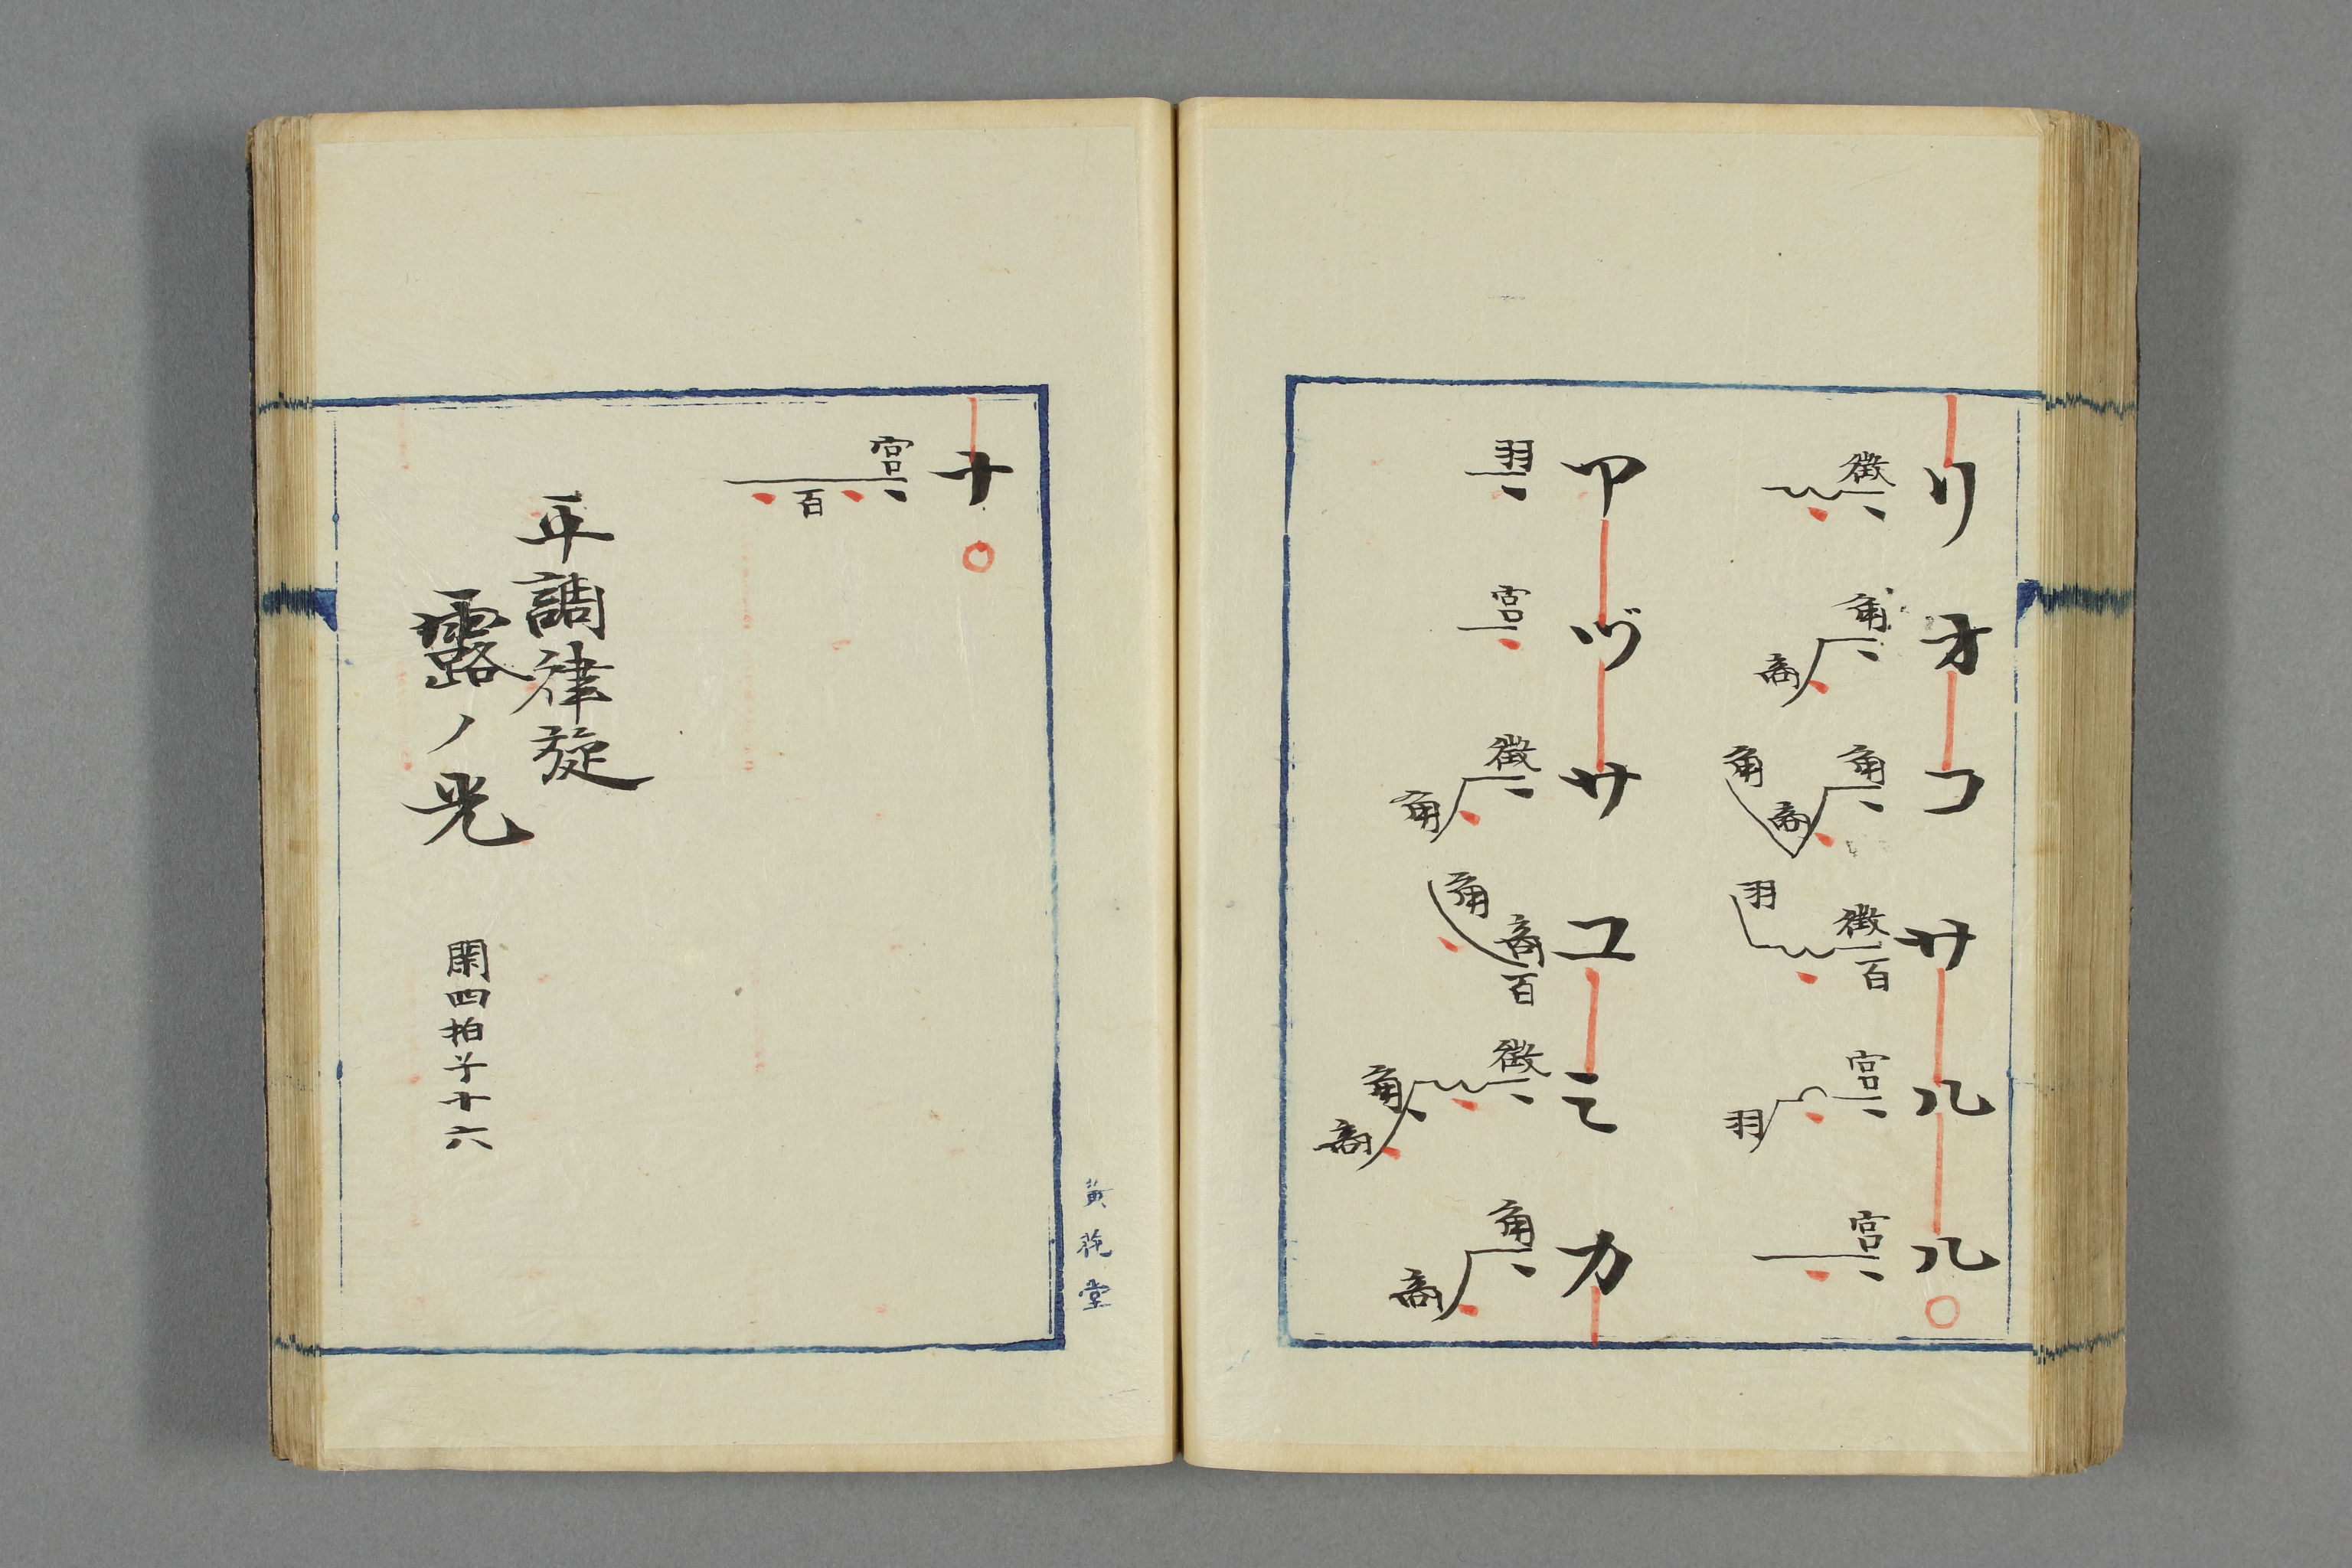 リオコサルル
徴 角商 角商角 徴百羽 宮羽 宮
アヅサユミカ
羽 宮 徴角 商百角 徴角商 角商
ナ
宮百
平調律旋
露ノ光 閑四拍子十六